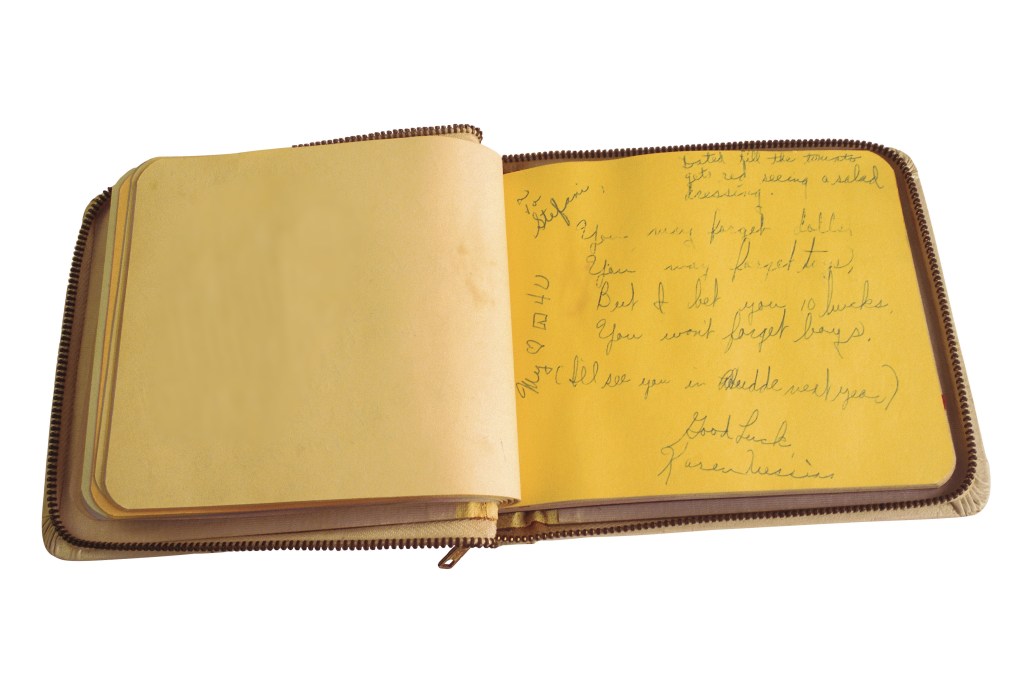 Dated till the tomato
gets red seeing a salad
dressing.
2 To
Stefani:
You may forget
You may forget toys,
But I bet you 10 bucks,
You won't forget boys.
My ♡ 4 U
(I'll see you in next year)
Good Luck
Karen